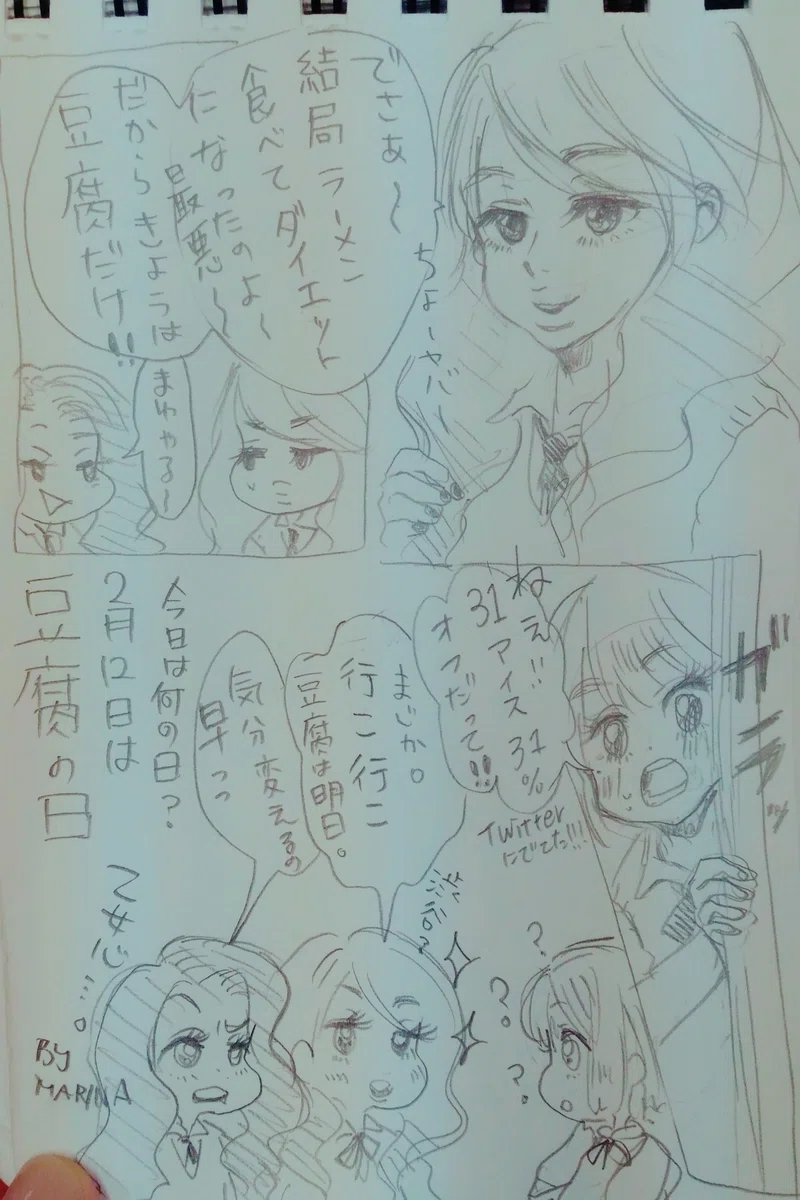 でさぁ〜
結局ラーメン
食べてダイエット
になったのよ〜
最悪〜
だからきょうは
豆腐だけ!!
ちょーヤバ
まわやる〜
ねぇ!!
31アイス31%
オフだって!!
ガラ
Twitter
にでてた!!!
まじか。
行こ行こ
豆腐は明日。
気分変えるの
早っ
渋谷?
? ? ?
今日は何の日?
2月12日は
豆腐の日
乙女心…。
BY
MARINA